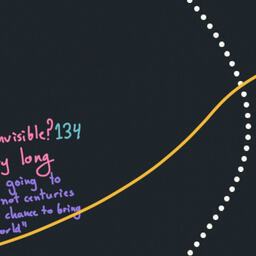 nvisible?134
y long
going to
not centuries
chance to bring
orld"